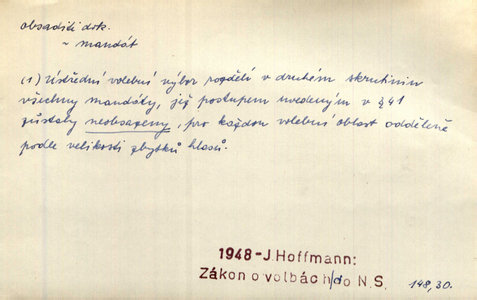 obsaditi dok.
~ mandát
(1) Ústřední volební výbor rozdělí v druhém skrutiniu
všechny mandáty, jež postupem uvedeným v § 41
zůstaly neobsazeny, pro každou volební oblast odděleně
podle velikosti zbytků hlasů.
1948-J.Hoffmann:
Zákon o volbách do N.S.
148,30.